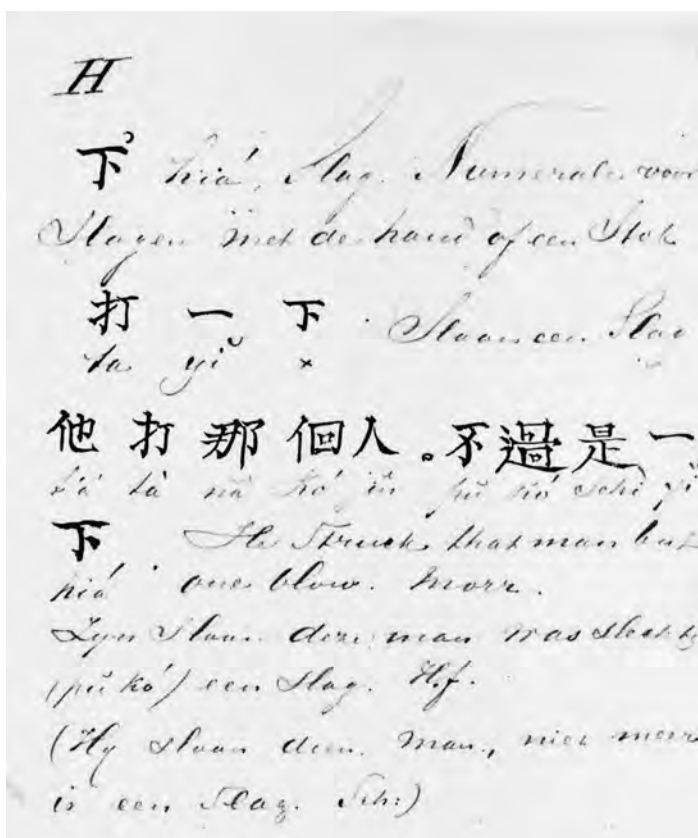 H
下 hiá, Slag. Numerale voor
Slagen met de hand of een Stok
打 一 下 . Slaan een Slag
ta yĭ ×
他 打 那 個 人 。不 過 是 一
t'á tà ná kó jîn pŭ kó schi yĭ
下 He Struck that man but
hiá one blow. Morr.
Zyn Slaan dien man was slechts
(pŭ kó) een Slag. Hff.
(Hy Slaan dien man, niet meer
is een Slag. Sch:)